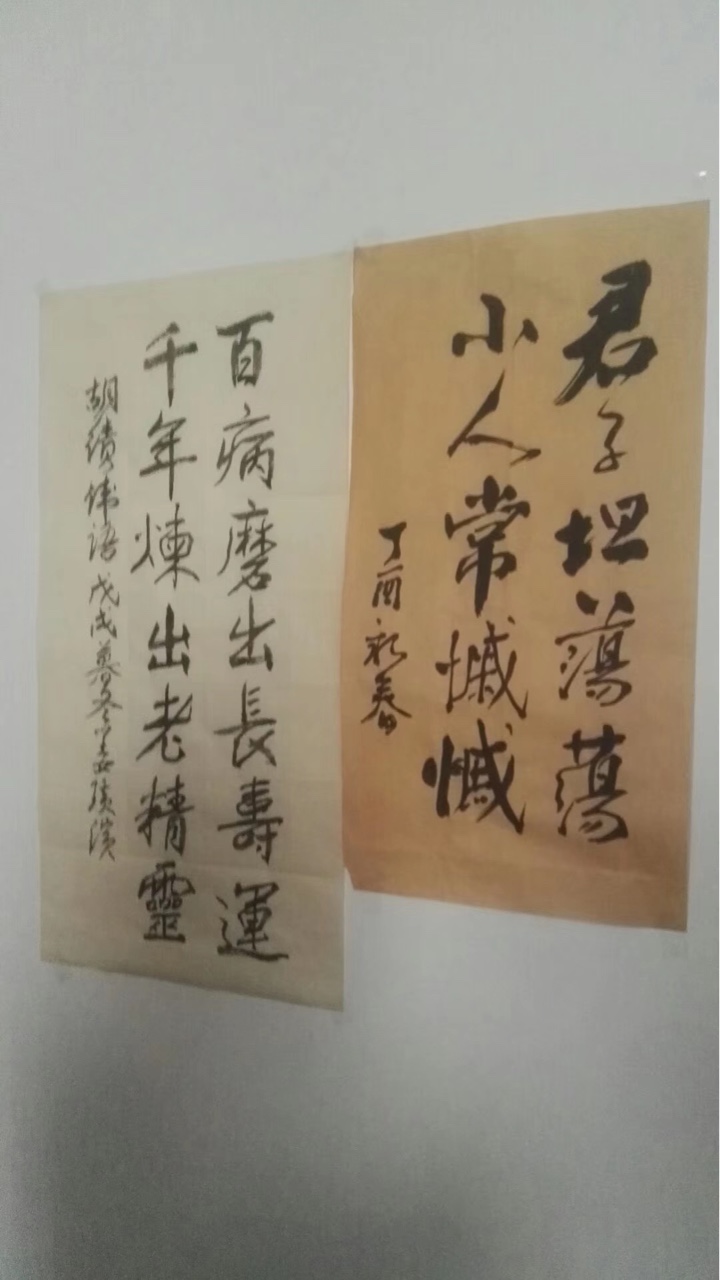 君子坦蕩蕩
小人常慽慽
丁酉初春
百病磨出長壽運
千年煉出老精靈
胡績偉語戊戌暮冬